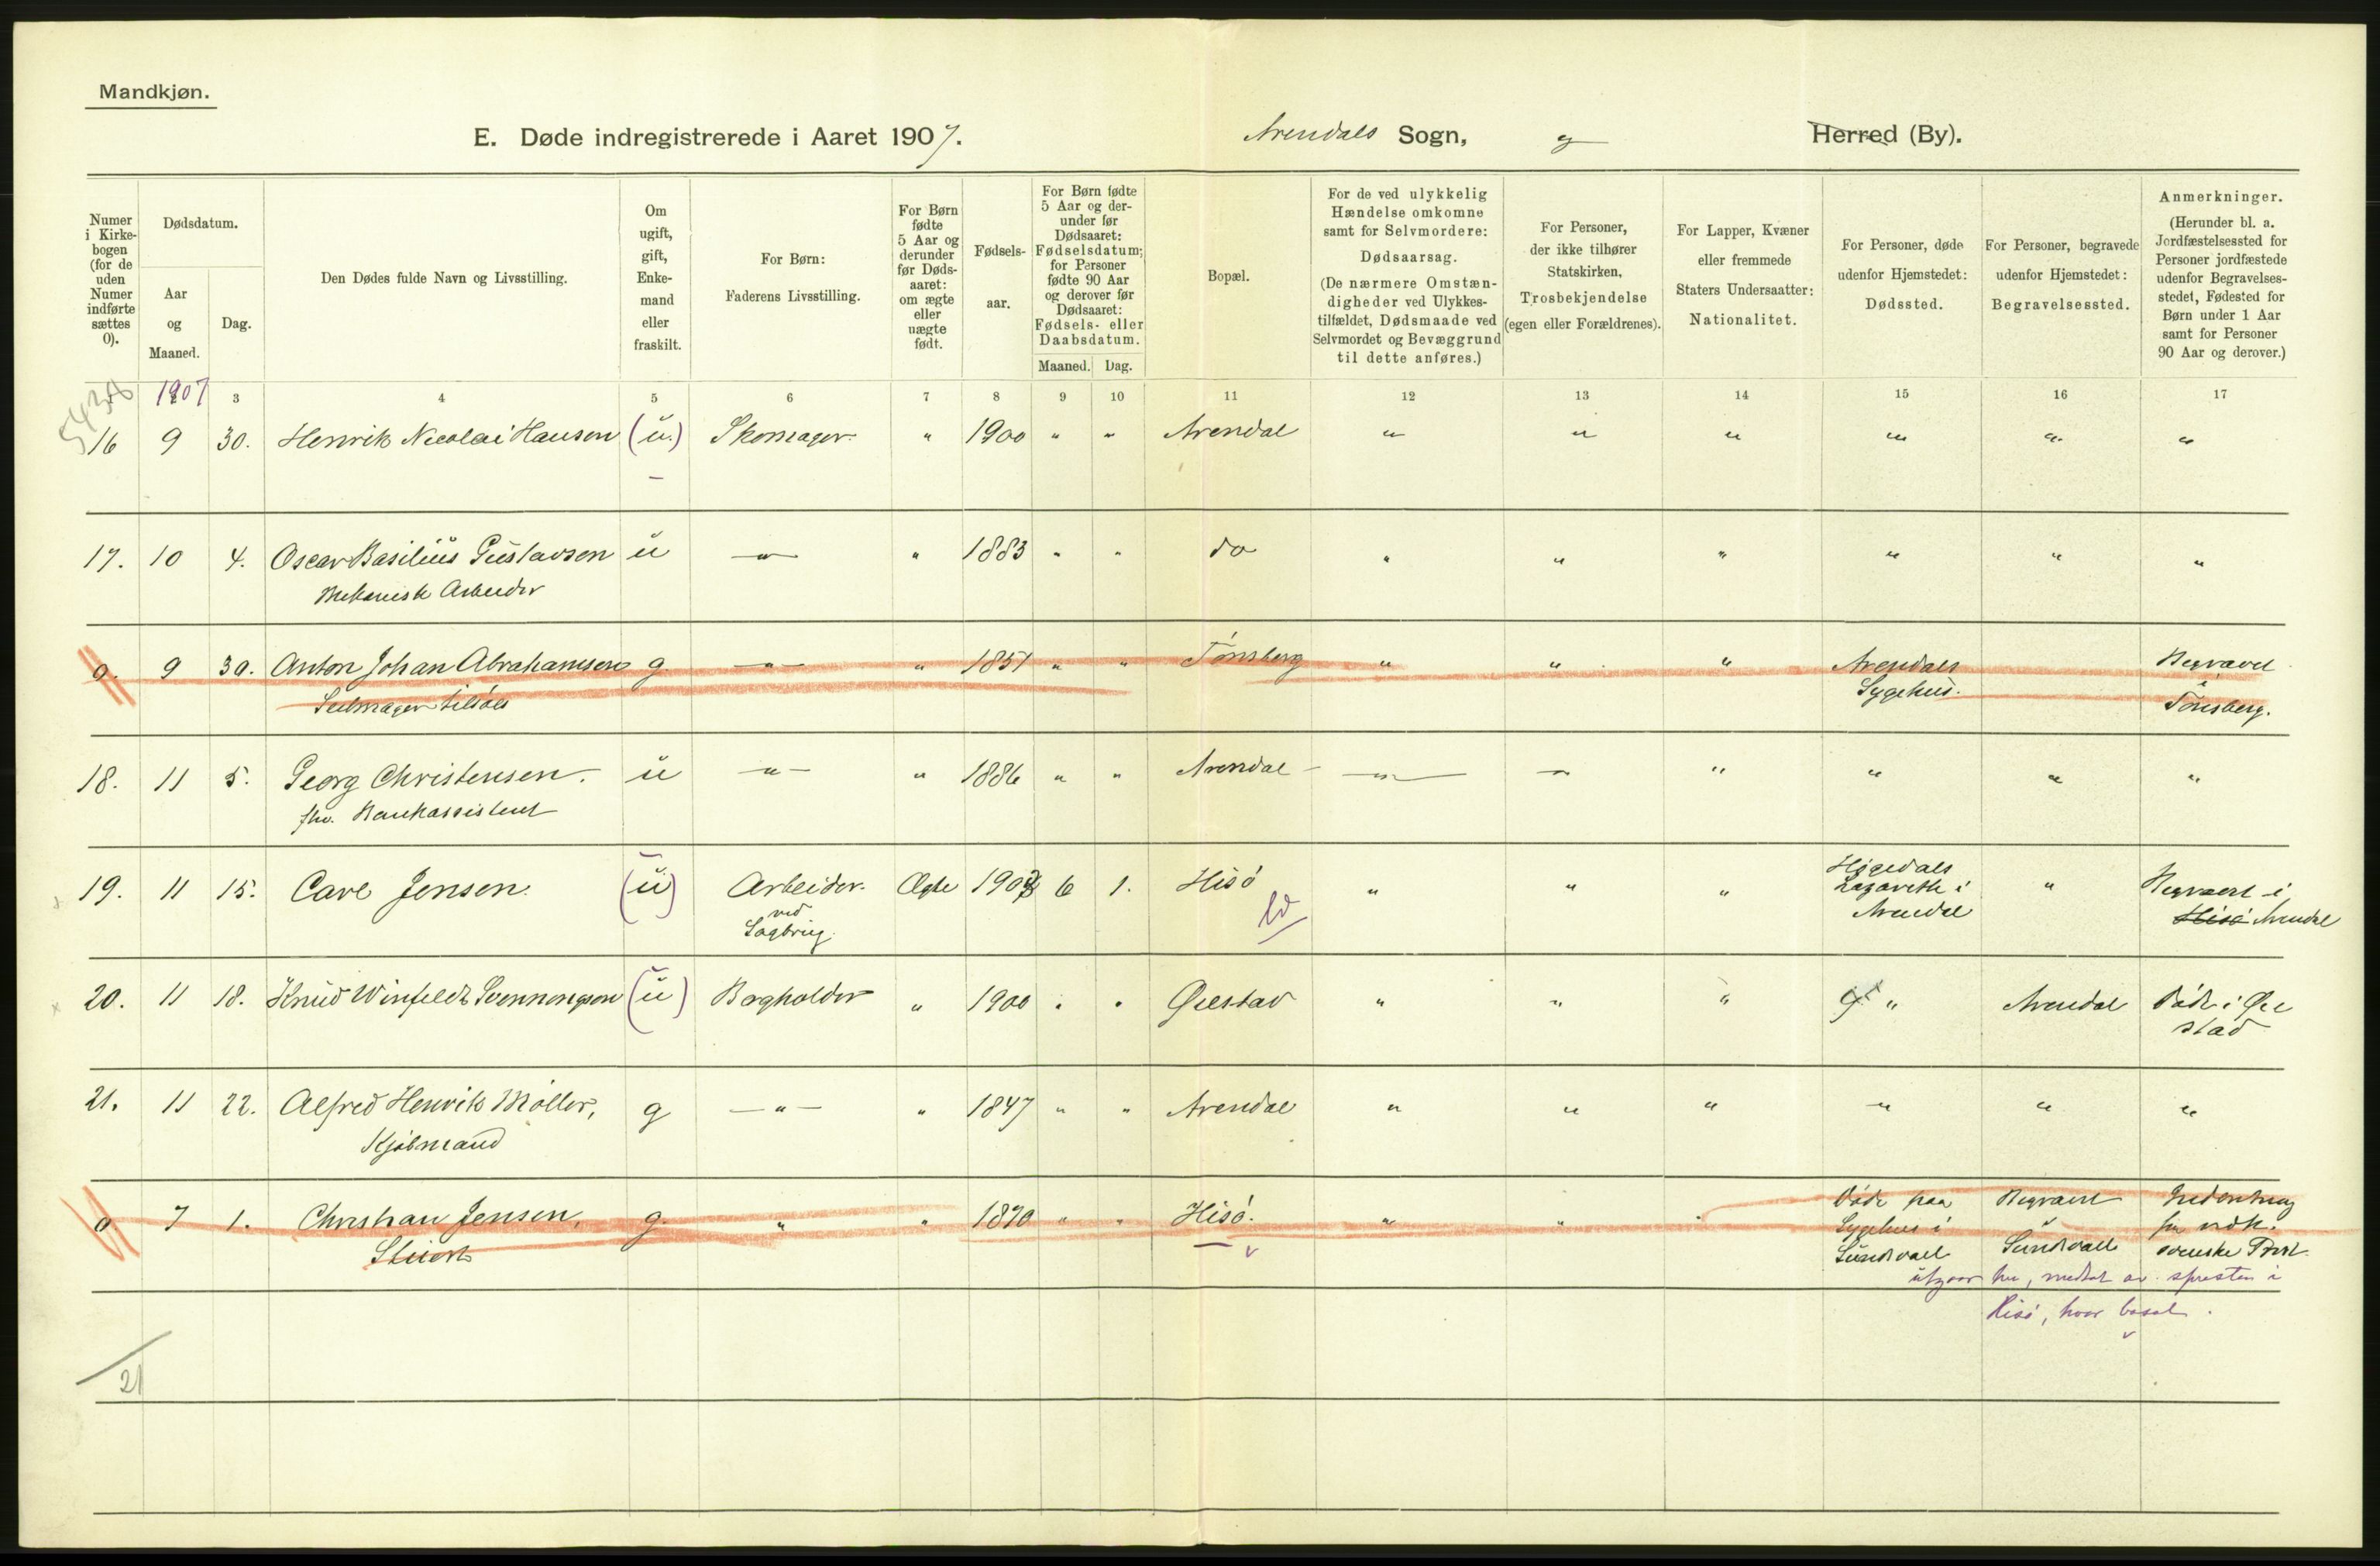 Mandkjøn.
E. Døde indregistrerede i Aaret 1907. Arendals Sogn, og Herred (By).
Numer i Kirkebogen (for de uden Numer indførte sættes 0).
Dødsdatum.
Aar og Maaned.
Dag.
Den Dødes fulde Navn og Livsstilling.
Om ugift, gift, Enkemand eller fraskilt.
For Børn: Faderens Livsstilling.
For Børn fødte 5 Aar og derunder før Dødsaaret: om ægte eller uægte født.
Fødselsaar.
For Børn fødte 5 Aar og derunder før Dødsaaret: Fødselsdatum; for Personer fødte 90 Aar og derover før Dødsaaret: Fødsels- eller Daabsdatum.
Maaned. Dag.
Bopæl.
For de ved ulykkelig Hændelse omkomne samt for Selvmordere: Dødsaarsag. (De nærmere Omstændigheder ved Ulykkestilfældet, Dødsmaade ved Selvmordet og Bevæggrund til dette anføres.)
For Personer, der ikke tilhører Statskirken, Trosbekjendelse (egen eller Forældrenes).
For Lapper, Kvæner eller fremmede Staters Undersaatter: Nationalitet.
For Personer, døde udenfor Hjemstedet: Dødssted.
For Personer, begravede udenfor Hjemstedet: Begravelsessted.
Anmerkninger. (Herunder bl. a. Jordfæstelsessted for Personer jordfæstede udenfor Begravelsesstedet, Fødested for Børn under 1 Aar samt for Personer 90 Aar og derover.)
1907 3 4 5 6 7 8 9 10 11 12 13 14 15 16 17
16 9 30. Henrik Nicolai Hansen (u.) Skomager. " 1900 " " Arendal " " " " " "
17. 10 4. Oscar Basilius Gustavsen u " " 1883 " " do " " " " " "
Mekanisk Arbeider
0. 9 30. Anton Johan Abrahamsen g " " 1851 " " Tønsberg " " " Arendals Sygehus. Begravet i Tønsberg.
Seilmager tilsøes
18. 11 5. Georg Christensen. u " " 1886 " " Arendal " " " " " "
fhv. Bankassistent
19. 11 15. Carl Jensen. (u) Arbeider ved Sagbrug. Ægte 1902 6 1. Hisø " " " Høgedals Lazareth i Arendal " Begravet i Hisø Arendal
20. 11 18. Knud Winfeldt Svennengsen (u) Bogholder " 1900 " " Øiestad " " " " Arendal Døde i Øiestad
21. 11 22. Alfred Henrik Møller, g " " 1847 " " Arendal " " " " " "
Kjøbmand
0 7 1. Christian Jensen, g. " " 1870 " " Hisø. " " " Døde paa Sygehus i Sundsvall Begravet i Sundsvall Indberetning fra vedk. svenske Prest.
Stuert
utgaar her, medtat av spresten i
Hisø, hvor bosat.
21